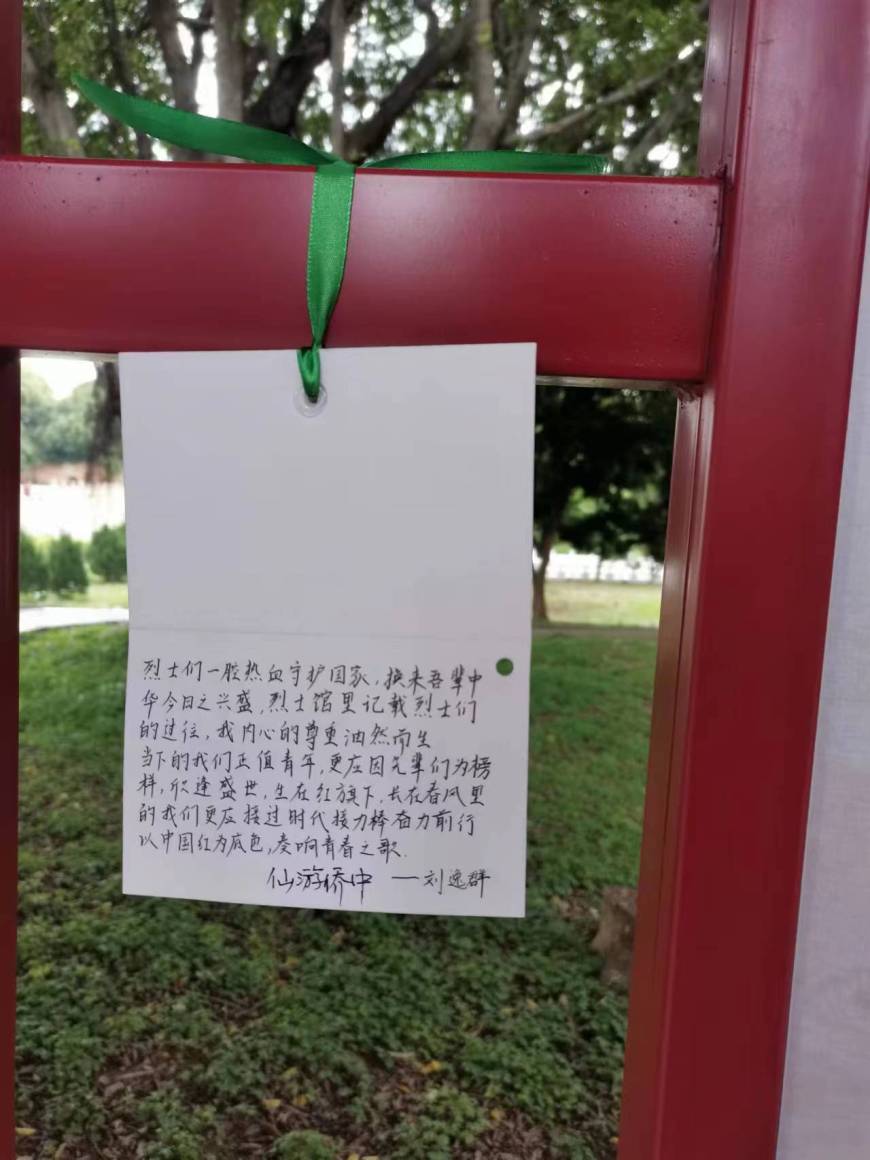 烈士们一腔热血守护国家,换来吾辈中
华今日之兴盛,烈士馆里记载烈士们
的过往,我内心的尊重油然而生
当下的我们正值青年,更应因先辈们为榜
样,欣逢盛世,生在红旗下,长在春风里
的我们更应接过时代接力棒奋力前行
以中国红为底色,奏响青春之歌.
仙游侨中 — 刘逸群